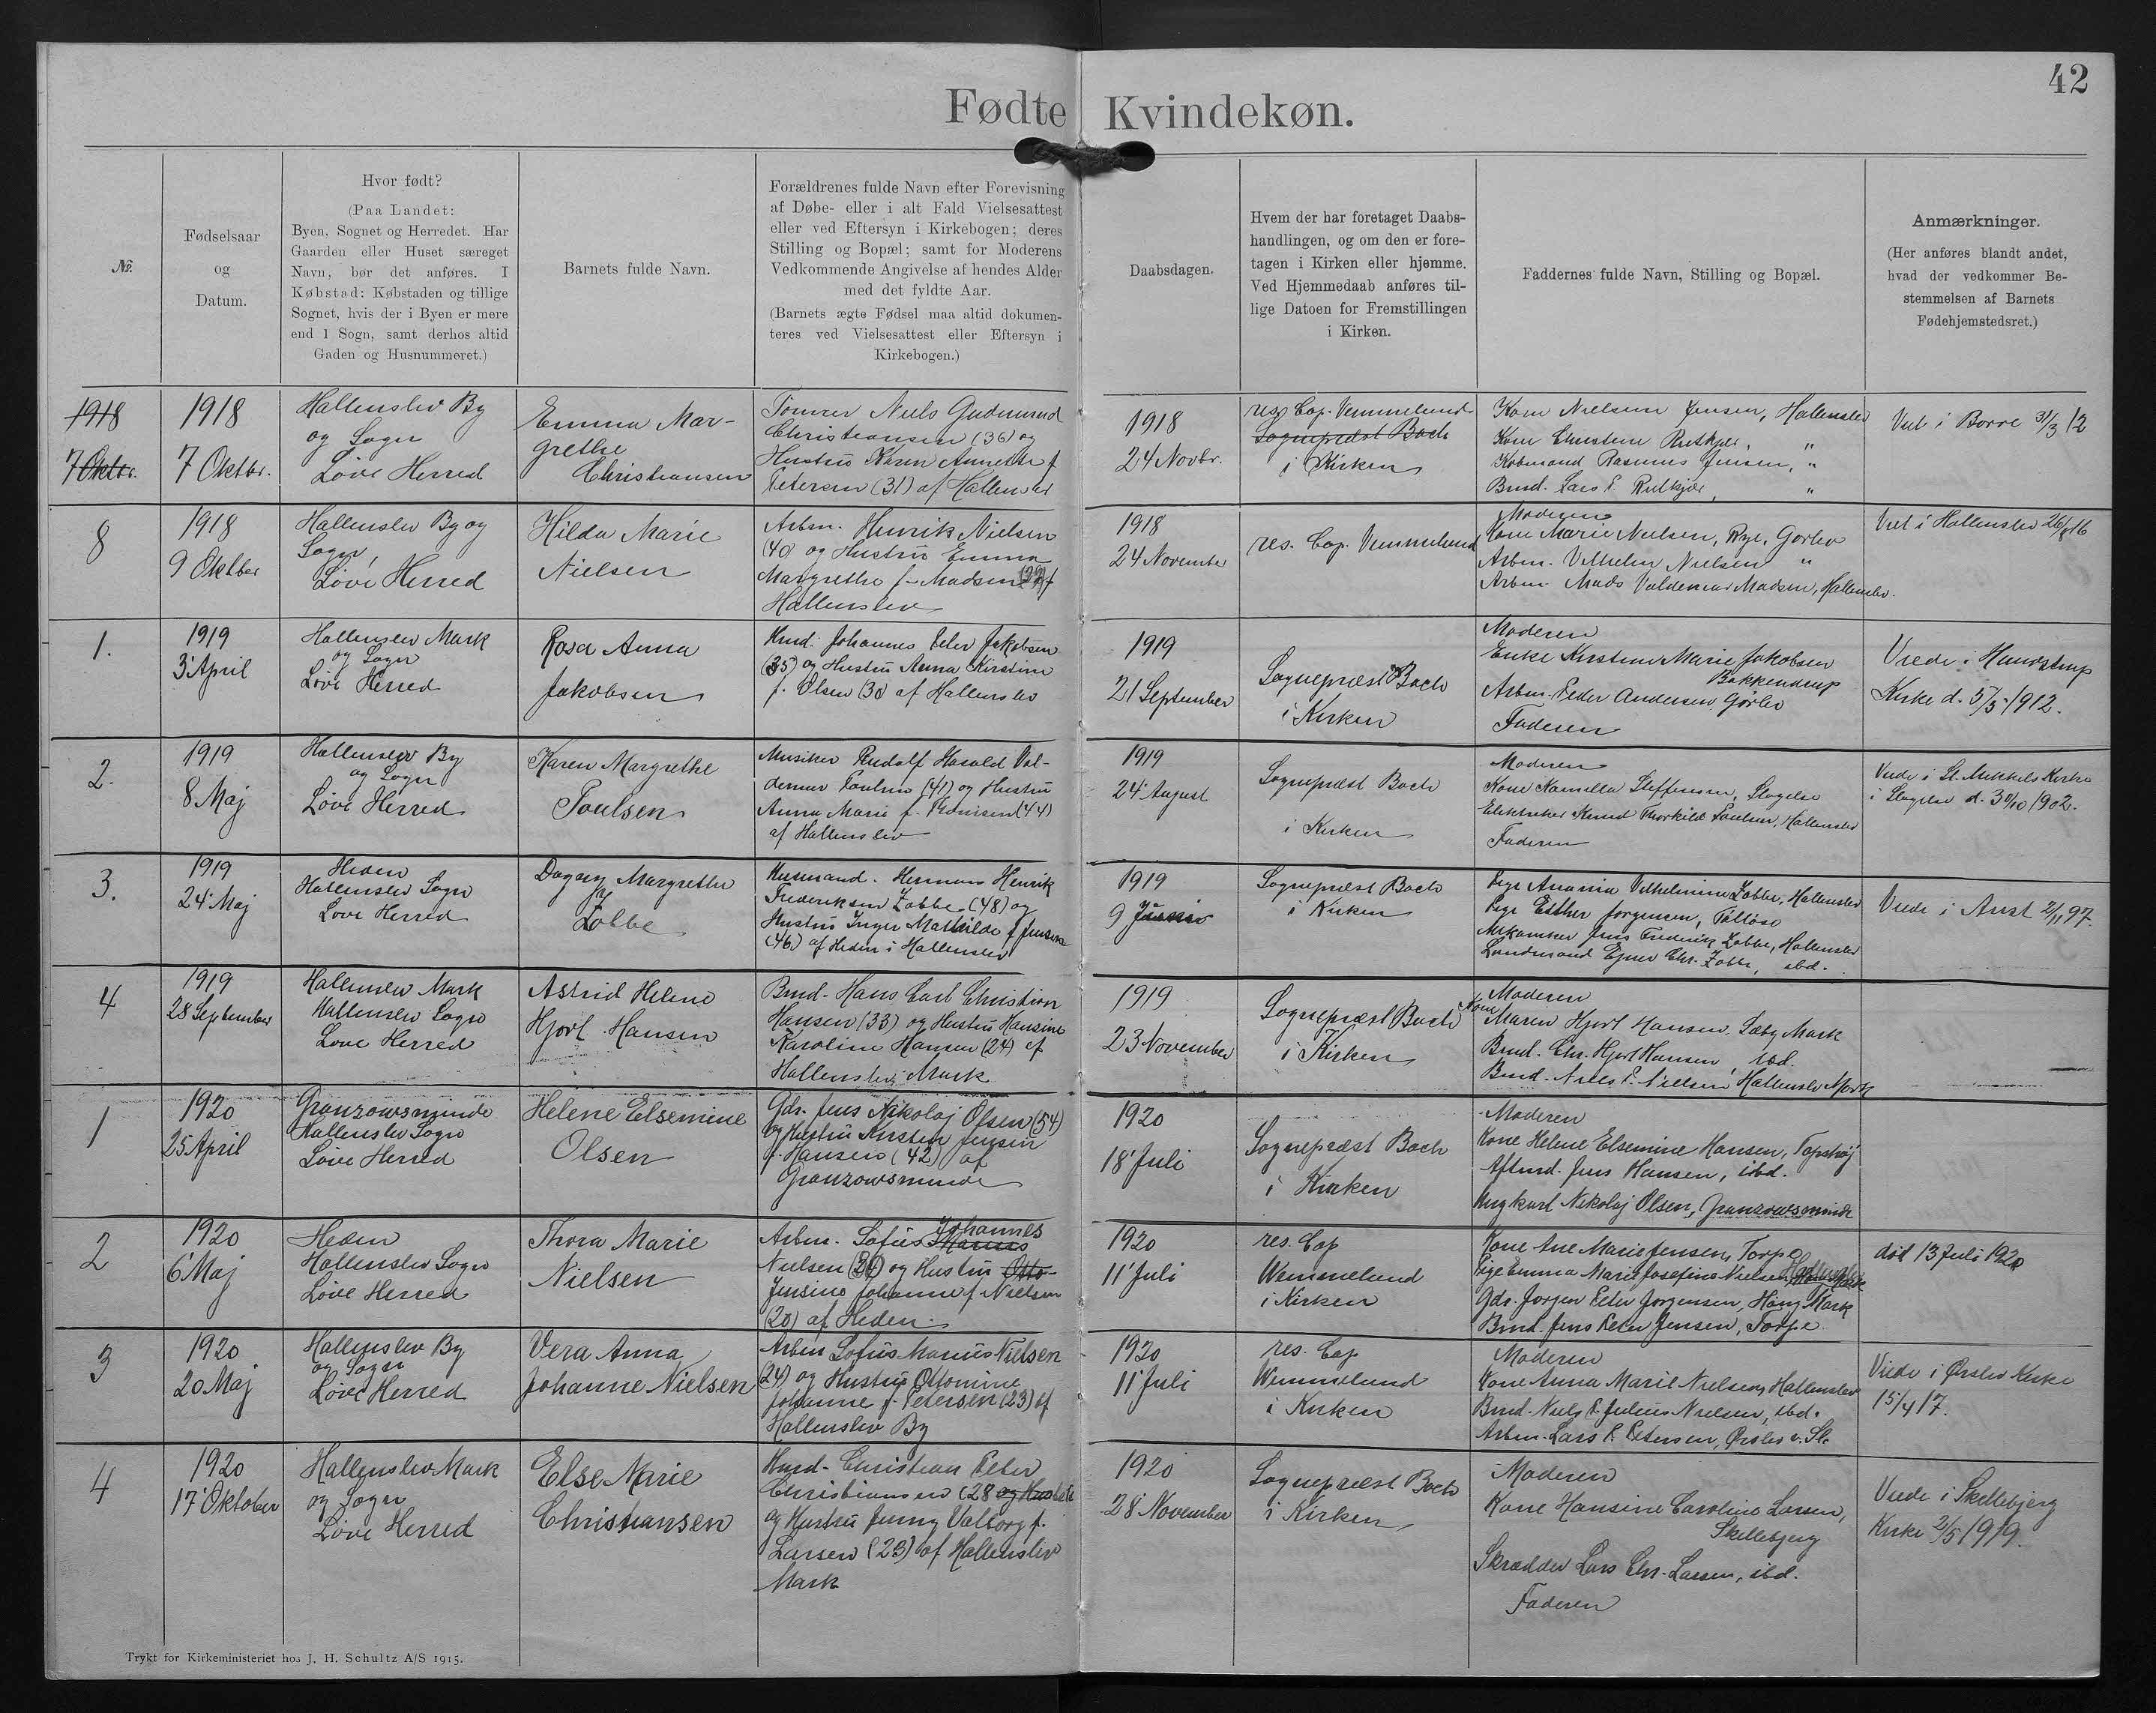 42
Fødte Kvindekøn.
№
Fødselsaar
og
Datum.
Hvor født?
(Paa Landet:
Byen, Sognet og Herredet. Har
Gaarden eller Huset særeget
Navn, bør det anføres. I
Købstad: Købstaden og tillige
Sognet, hvis der i Byen er mere
end 1 Sogn, samt derhos altid
Gaden og Husnummeret.)
Barnets fulde Navn.
Forældrenes fulde Navn efter Forevisning
af Døbe- eller i alt Fald Vielsesattest
eller ved Eftersyn i Kirkebogen; deres
Stilling og Bopæl; samt for Moderens
Vedkommende Angivelse af hendes Alder
med det fyldte Aar.
(Barnets ægte Fødsel maa altid dokumen-
teres ved Vielsesattest eller Eftersyn i
Kirkebogen.)
Daabsdagen.
Hvem der har foretaget Daabs-
handlingen, og om den er fore-
tagen i Kirken eller hjemme.
Ved Hjemmedaab anføres til-
lige Datoen for Fremstillingen
i Kirken.
Faddernes fulde Navn, Stilling og Bopæl.
Anmærkninger.
(Her anføres blandt andet,
hvad der vedkommer Be-
stemmelsen af Barnets
Fødehjemstedsret.)
1918
7 Oktbr.
1918
7 Oktbr.
Hallenslev By
og Sogn
Løve Herred
Emma Mar-
grethe
Christiansen
Tømrer Niels Gudmund
Christiansen (36) og
Hustru Karen Annette f
Petersen (31) af Hallenslev
1918
24 Novbr.
res. Cap. Vemmelund
Sognepræst Bach
i Kirken
Kone Nielsine Jensen, Hallenslev
Kone Christine Rutkjær, "
Købmand Rasmus Jensen, "
Bmd. Lars P. Rutkjær, "
Viet i Borre 31/3 12
8
1918
9 Oktber
Hallenslev By og
Sogn,
Løve Herred
Hilda Marie
Nielsen
Arbm. Henrik Nielsen
(40) og Hustru Emma
Margrethe f. Madsen (29) f
Hallenslev
1918
24 November
res. Cap. Vemmelund
Moderen
Kone Marie Nielsen, Rye, Gørlev
Arbm. Vilhelm Nielsen "
Arbm. Mads Valdemar Madsen, Hallenslev.
Viet i Hallenslev 26/8 16
1.
1919
3' April
Hallenslev Mark
og Sogn
Løve Herred
Rosa Anna
Jakobsen
Hmd. Johannes Peter Jakobsen
(35) og Hustru Anna Kirstine
f. Olsen (30 af Hallenslev
1919
21 September
Sognepræst Bach
i Kirken
Moderen
Enke Kirstine Marie Jakobsen
Bakkendrup
Arbm. Peder Andersen Gørlev
Faderen
Viede i Haurstrup
Kirke d. 5/5 1912.
2.
1919
8 Maj
Hallenslev By
og Sogn
Løve Herred
Karen Margrethe
Poulsen
Musiker Rudolf Harald Val-
demar Poulsen (41) og Hustru
Anna Marie f. (44)
af Hallenslev
1919
24' August
Sognepræst Bach
i Kirken
Moderen
Kone Kamilla Steffensen, Slagelse
Elektriker Knud Thorkild Poulsen, Hallenslev
Faderen
Viede i St. Mikkels Kirke
i Slagelse d. 30/10 1902.
3.
1919
24' Maj
Heden
Hallenslev Sogn
Løve Herred
Dagny Margrethe
Zobbe
Husmand. Herman Henrik
Frederiksen Zobbe (48) og
Hustru Inger Mathilde f Jensen
(46) af Heden i Hallenslev
1919
9 Juni
Sognepræst Bach
i Kirken
Pige Anania Vilhelmine Zobbe, Hallenslev
Pige Esther Jørgensen, Tølløse
Jens Frederik Zobbe, Hallenslev
Landmand Ejner Chr. Zobbe, ibd.
Viede i Aust 2/11 97.
4
1919
28 September
Hallenslev Mark
Hallenslev Sogn
Løve Herred
Astrid Helene
Hjort Hansen
Bmd. Hans Carl Christian
Hansen (33) og Hustru Hansine
Karoline Hansen (24) af
Hallenslev Mark
1919
23 November
Sognepræst Bach
i Kirken
Moderen
Kone Maren Hjort Hansen, Sæby Mark
Bmd. Chr. Hjort Hansen, ibd.
Bmd. Niels P. Nielsen Hallenslev Mark
1
1920
25 April
Granzowsminde
Hallenslev Sogn
Løve Herred
Helene Elsemine
Olsen
Gdr. Jens Nikolaj Olsen (54)
og Hustru Kirsten Jensine
f. Hansen (42) af
Granzowsminde
1920
18' Juli
Sognepræst Bach
i Kirken
Moderen
Kone Helene Elsemine Hansen, Topshøj
Aftmd. Jens Hansen, ibd.
Ungkarl Nikolaj Olsen, Granzowsminde
2
1920
6' Maj
Heden
Hallenslev Sogn
Løve Herred
Thora Marie
Nielsen
Johannes
Arbm. Sofus Marius
Nielsen (26) og Hustru Otto-
Jensine Johanne f. Nielsen
(20) af Heden.
1920
11' Juli
res. Cap
Wemmelund
i Kirken
Kone Ane Marie Jensen, Torpe
Pige Emma Marie Josefine Nielsen,
Gdr. Jørgen Peter Jørgensen, Høng Mark
Bmd. Jens Peter Jensen, Torpe.
død 13 Juli 1920
3
1920
20 Maj
Hallenslev By
og Sogn
Løve Herred
Vera Anna
Johanne Nielsen
Arbm Sofus Marius Nielsen
(24) og Hustru Ottomine
Johanne f. Petersen (23) af
Hallenslev By
1920
11' Juli
res. Cap
Wemmelund
i Kirken
Moderen
Kone Anna Marie Nielsen, Hallenslev
Bmd. Niels P. Julius Nielsen, ibd.
Arbm. Lars P. Petersen, Ørslev v. Sl.
Viede i Ørslev Kirke
15/4 17.
4
1920
17' Oktober
Hallenslev Mark
og Sogn
Løve Herred
Else Marie
Christiansen
Hmd. Christian Peter
Christiansen (28 og Hustru
og Hustru Jenny Valborg f.
Larsen (23) af Hallenslev
Mark
1920
28' November
Sognepræst Bach
i Kirken
Moderen
Kone Hansine Caroline Larsen,
Skellebjerg
Skrædder Lars Chr. Larsen, ibd.
Faderen
Viede i Skellebjerg
Kirke 2/5 1919.
Trykt for Kirkeministeriet hos J. H. Schultz A/S 1915.